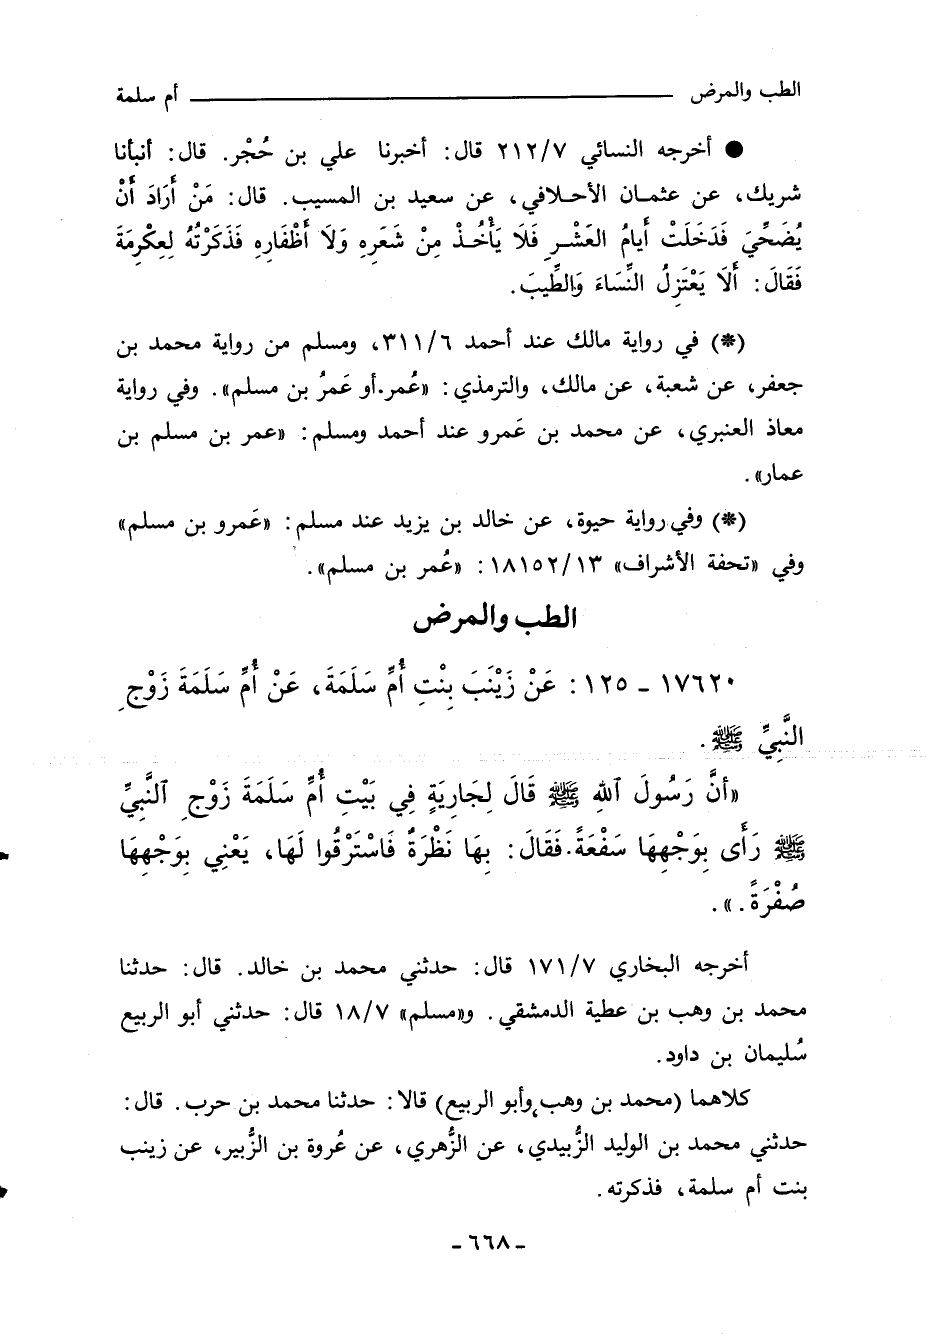 الطب والمرض ــــــــــــــ أم سلمة
● أخرجه النسائي ٢١٢/٧ قال: أخبرنا علي بن حُجْر. قال: أنبأنا
شريك، عن عثمان الأحلافي، عن سعيد بن المسيب. قال: مَنْ أَرَادَ أَنْ
يُضَحِّيَ فَدَخَلَتْ أَيامُ العَشْرِ فَلَا يَأْخُذْ مِنْ شَعَرِهِ وَلَا أَظْفَارِهِ فَذَكَرْتُهُ لِعِكْرِمَةَ
فَقَالَ: أَلَا يَعْتَزِلُ النِّسَاءَ وَالطِّيبَ.
(*) في رواية مالك عند أحمد ٣١١/٦، ومسلم من رواية محمد بن
جعفر، عن شعبة، عن مالك، والترمذي: «عُمر.أو عَمرُ بن مسلم». وفي رواية
معاذ العنبري، عن محمد بن عَمرو عند أحمد ومسلم: «عمر بن مسلم بن
عمار».
(*) وفي رواية حيوة، عن خالد بن يزيد عند مسلم: «عَمرو بن مسلم»
وفي «تحفة الأشراف» ١٨١٥٢/١٣: «عُمر بن مسلم».
الطب والمرض
١٧٦٢٠ - ١٢٥: عَنْ زَيْنَبَ بِنْتِ أُمِّ سَلَمَةَ، عَنْ أُمِّ سَلَمَةَ زَوْجِ
النَّبِيِّ ﷺ.
«أَنَّ رَسُولَ اللهِ ﷺ قَالَ لِجَارِيَةٍ فِي بَيْتِ أُمِّ سَلَمَةَ زَوْجِ النَّبِيِّ
ﷺ رَأَى بِوَجْهِهَا سَفْعَةً.فَقَالَ: بِهَا نَظْرَةٌ فَاسْتَرْقُوا لَهَا، يَعْنِي بِوَجْهِهَا
صُفْرَةً.».
أخرجه البخاري ١٧١/٧ قال: حدثني محمد بن خالد. قال: حدثنا
محمد بن وهب بن عطية الدمشقي. و«مسلم» ١٨/٧ قال: حدثني أبو الربيع
سُليمان بن داود.
كلاهما (محمد بن وهب، وأبو الربيع) قالا: حدثنا محمد بن حرب. قال:
حدثني محمد بن الوليد الزُّبيدي، عن الزُّهري، عن عُروة بن الزُّبير، عن زينب
بنت أم سلمة، فذكرته.
- ٦٦٨ -